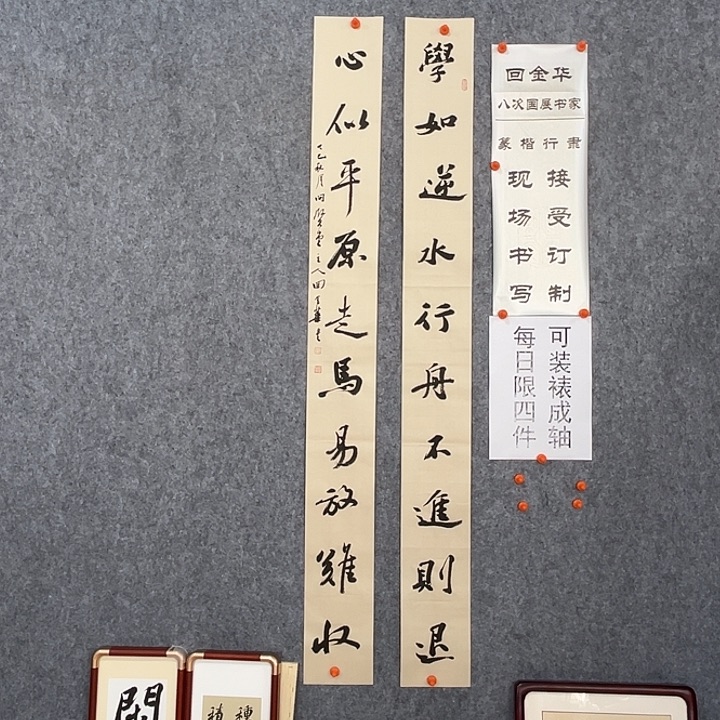 學如逆水行舟不進則退
心似平原走馬易放難收
回金华
八次国展书家
篆楷行隶
接受订制
现场书写
可装裱成轴
每日限四件
閑